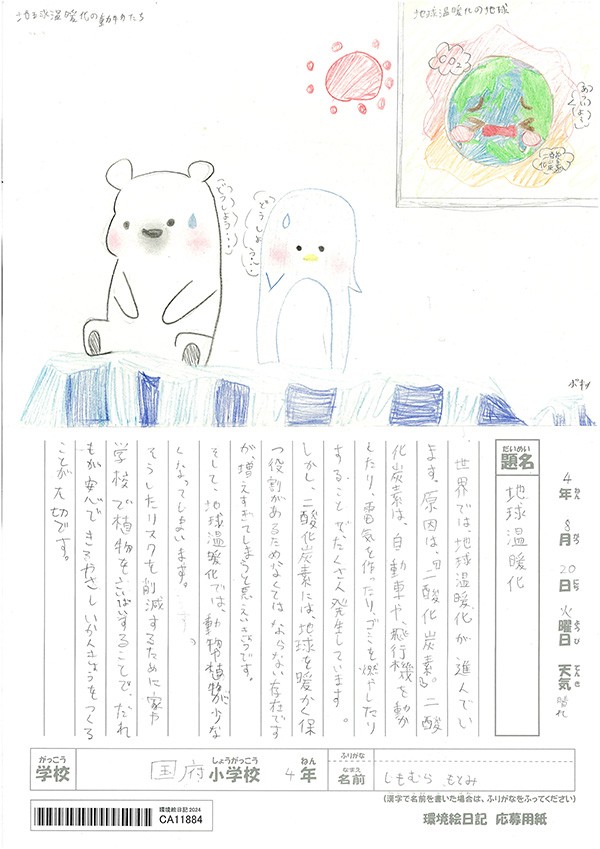 地球温暖化の動物たち
地球温暖化の地球
CO2
あついよ〜
二酸化炭素
どうしよう・・・
どうしよう・・・
4年 8月 20日 火曜日 天気 晴れ
ねん がつ にち ようび てんき
だいめい
題名
地球温暖化
世界では、地球温暖化が進んでい
ます。原因は、「二酸化炭素」。二酸
化炭素は、自動車や、飛行機を動か
したり、電気を作ったり、ゴミを燃やしたり
することで、たくさん発生しています。
しかし、二酸化炭素には、地球を暖かく保
つ役割があるためなくてはならない存在です
が、増えすぎてしまうと悪えいきょうです。
そして、地球温暖化では、動物や植物が少な
くなってしまいます。
そうしたリスクを削減するために家や
学校で植物をさいばいすることで、だれ
もが安心できるやさしいかんきょうをつくる
ことが大切です。
がっこう
学校
国府
しょうがっこう
小学校
4
ねん
年
ふりがな
なまえ
名前
しもむら もとみ
(漢字で名前を書いた場合は、ふりがなをふってください)
環境絵日記2024
CA11884
環境絵日記 応募用紙